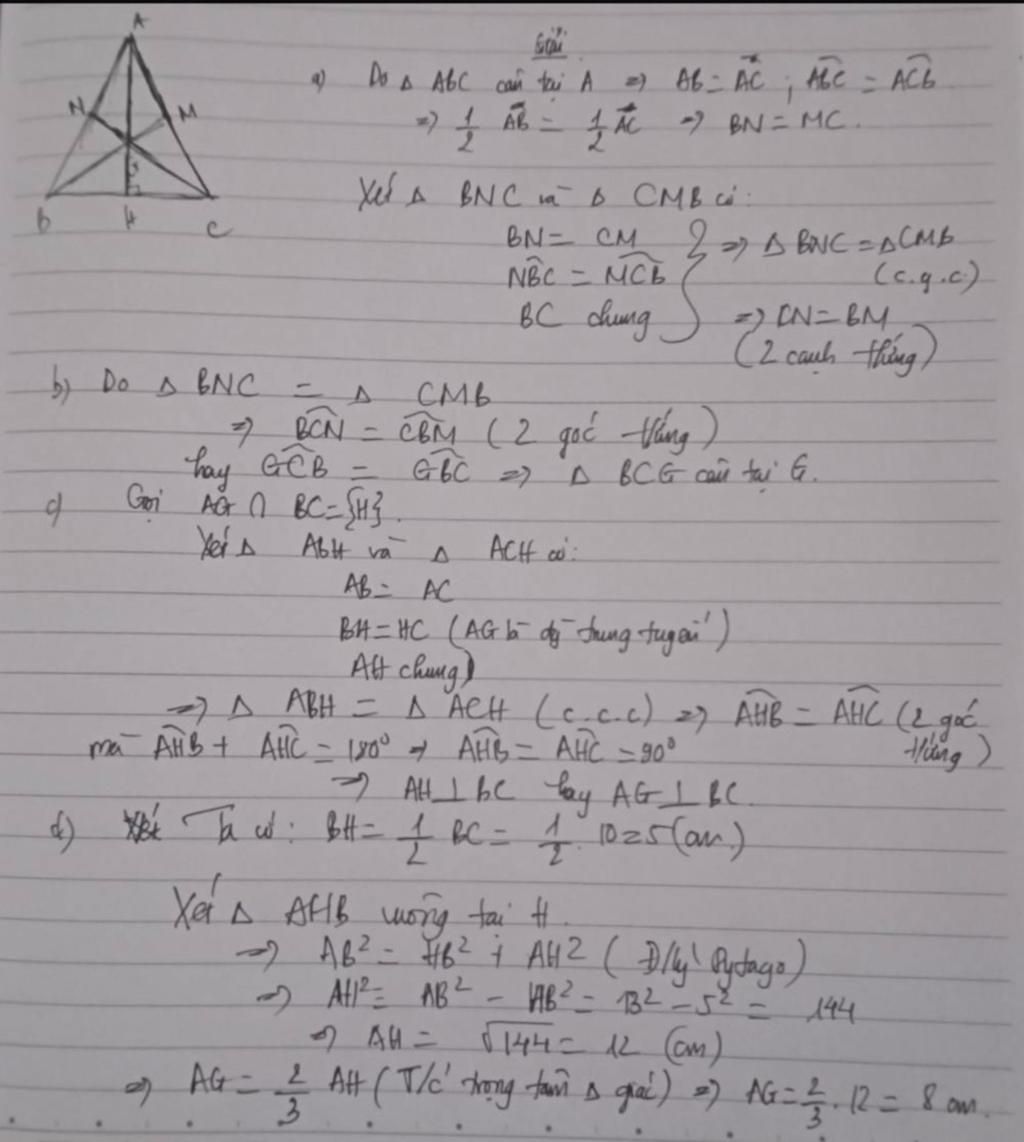 A
N
M
G
B
H
C
Giải
a) Do Δ ABC cân tại A ⇒ AB = AC ; \widehat{ABC} = \widehat{ACB}
⇒ 1/2 AB = 1/2 AC ⇒ BN = MC.
Xét Δ BNC và Δ CMB có:
BN = CM
\widehat{NBC} = \widehat{MCB}
BC chung
} ⇒ Δ BNC = Δ CMB
(c.g.c)
⇒ CN = BM
(2 cạnh tứng)
b) Do Δ BNC = Δ CMB
⇒ \widehat{BCN} = \widehat{CBM} (2 góc tứng)
hay \widehat{GCB} = \widehat{GBC} ⇒ Δ BCG cân tại G.
c) Gọi AG ∩ BC = {H}.
Xét Δ ABH và Δ ACH có:
AB = AC
BH = HC (AG là đg trung tuyến)
AH chung)
⇒ Δ ABH = Δ ACH (c.c.c) ⇒ \widehat{AHB} = \widehat{AHC} (2 góc
tứng)
mà \widehat{AHB} + \widehat{AHC} = 180° ⇒ \widehat{AHB} = \widehat{AHC} = 90°
⇒ AH ⊥ BC hay AG ⊥ BC.
d) Ta có: BH = 1/2 BC = 1/2 . 10 = 5 (cm.)
Xét Δ AHB vuông tại H.
⇒ AB² = HB² + AH² (Đ/lý Pytago)
⇒ AH² = AB² - HB² = 13² - 5² = 144
⇒ AH = √144 = 12 (cm)
⇒ AG = 2/3 AH (T/c trọng tâm Δ giác) ⇒ AG = 2/3 . 12 = 8 cm.